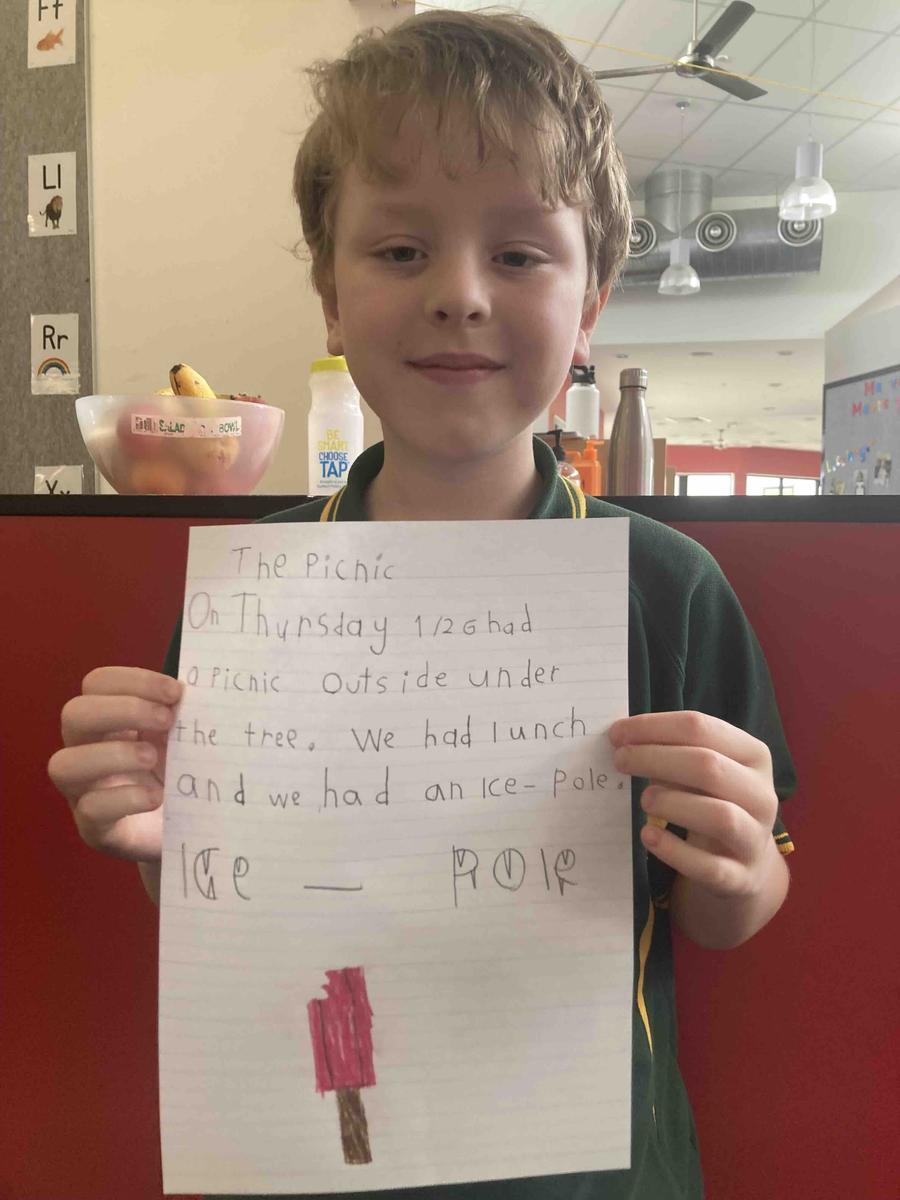 Ff
Ll
Rr
SALAD BOWL
BE
SMART
CHOOSE
TAP
The Picnic
On Thursday 1/2G had
a Picnic Outside under
the tree. We had lunch
and we had an Ice-Pole.
ICe — POle